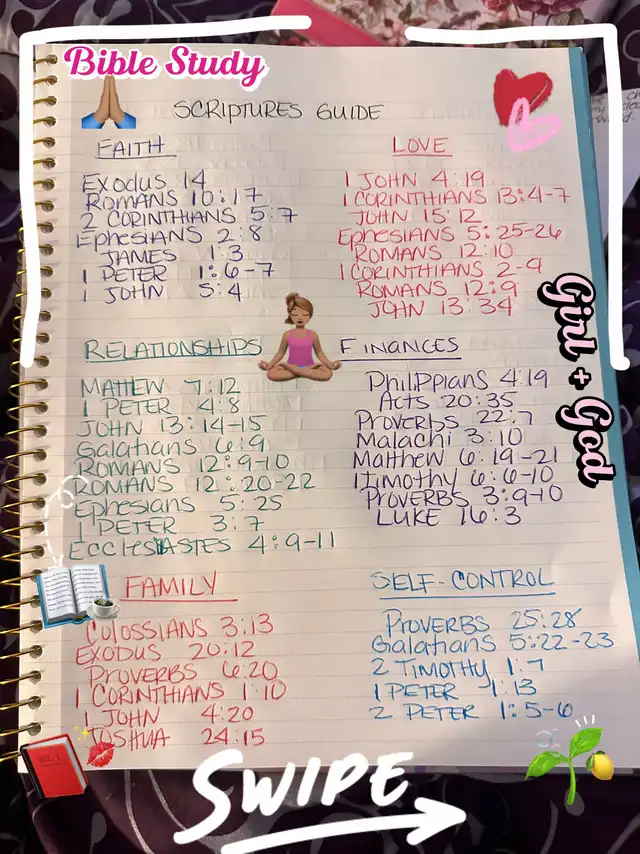 Bible Study
SCRIPTURES GUIDE
FAITH
EXODUS 14
ROMANS 10:17
2 CORINTHIANS 5:7
Ephesians 2:8
JAMES 1:3
1 PETER 1:6-7
1 JOHN 5:4
LOVE
1 JOHN 4:19
1 CORINTHIANS 13:4-7
JOHN 15:12
Ephesians 5:25-26
ROMANS 12:10
1 CORINTHIANS 2-9
ROMANS 12:9
JOHN 13:34
Girl + God
RELATIONSHIPS
MATTHEW 7:12
1 PETER 4:8
JOHN 13:14-15
Galatians 6:9
ROMANS 12:9-10
ROMANS 12:20-22
Ephesians 5:25
1 PETER 3:7
ECCLESIASTES 4:9-11
FINANCES
PhilIPPians 4:19
Acts 20:35
Proverbs 22:7
Malachi 3:10
Matthew 6:19-21
1 Timothy 6:6-10
PROVERBS 3:9-10
LUKE 16:3
FAMILY
COLOSSIANS 3:13
EXODUS 20:12
PROVERBS 6:20
1 CORINTHIANS 1:10
1 JOHN 4:20
JOSHUA 24:15
SELF-CONTROL
PROVERBS 25:28
Galatians 5:22-23
2 TIMOTHY 1:7
1 PETER 1:13
2 PETER 1:5-6
VOL. 1
SWIPE